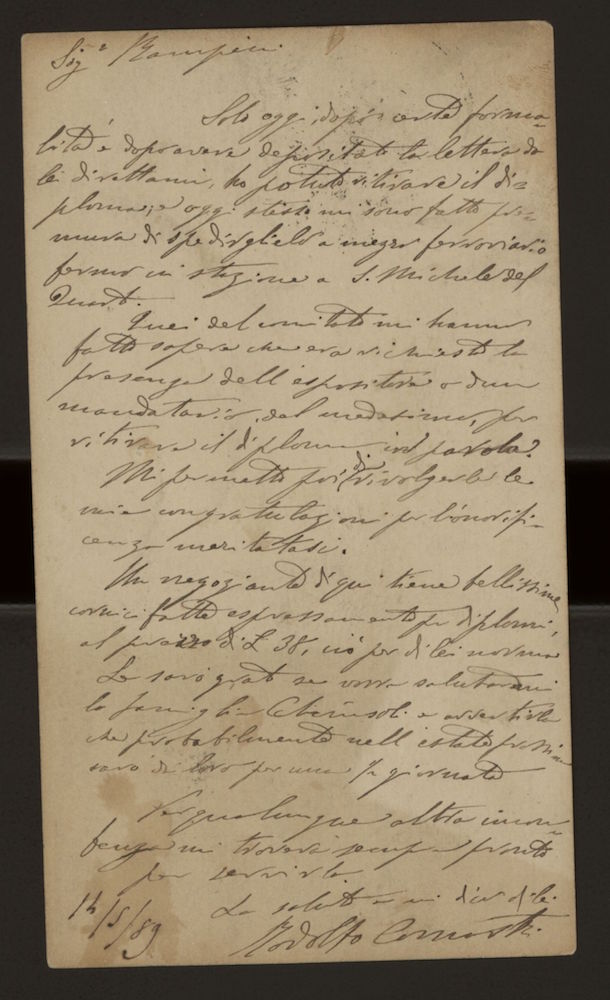 Sig.r Rampini
Solo oggi, dopo certe forma-
lità e dopo avere depositato la lettera da
lei direttami, ho potuto ritirare il di=
ploma; e oggi stesso mi sono fatto pre=
mura di spedirglielo a mezzo ferroviario
fermo in stazione a S. Michele del
Quart.
Quei del comitato mi hanno
fatto sapere che era richiesta la
presenza dell'espositore o d'un
mandatario, dal medesimo, per
ritirare il diploma in parola.
Mi permetto poi di rivolgerle le
mie congratulazioni per l'onorifi-
cenza meritatasi.
Un negoziante di qui tiene bellissime
cornici fatte espressamente per diplomi,
al prezzo di £ 38, ciò per di lei norma
Le sarò grato se vorrà salutarmi
la famiglia e avvertirla
che probabilmente nell'estate prossima
sarò da loro per una ½ giornata
Per qualunque altra incom-
benza mi troverà sempre pronto
per servirla
La saluto e mi dico di lei
14/5/89 Rodolfo